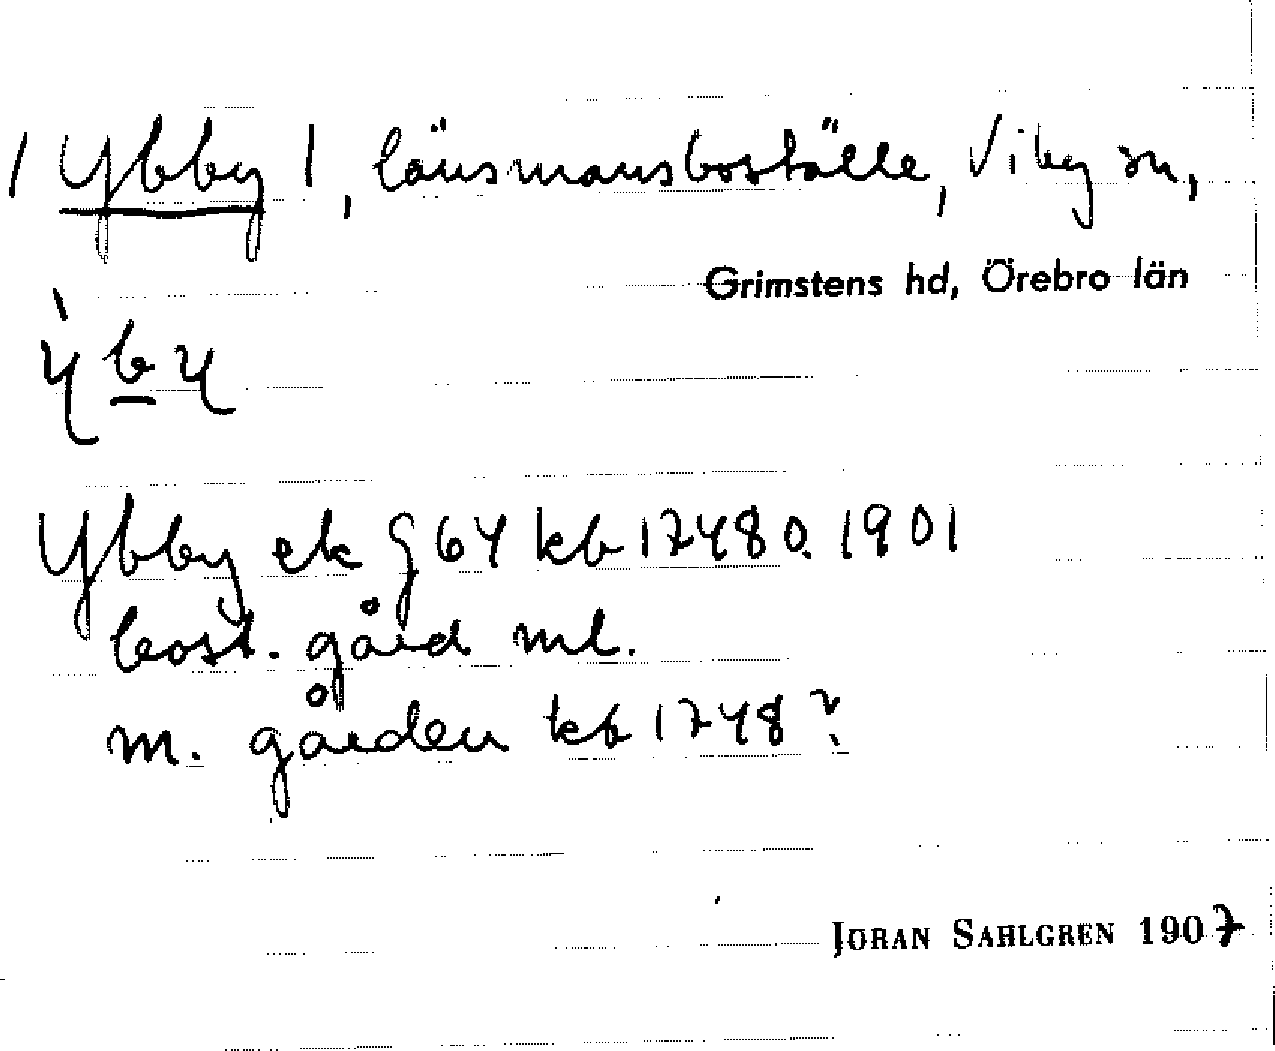 / Ybby /, länsmansboställe, Viby sn,
Grimstens hd, Örebro län
ỳby
Ybby ek G 64 kb 1748 o. 1901
bost. gård ml.
m. gården kb 1748?
JÖRAN SAHLGREN 1907